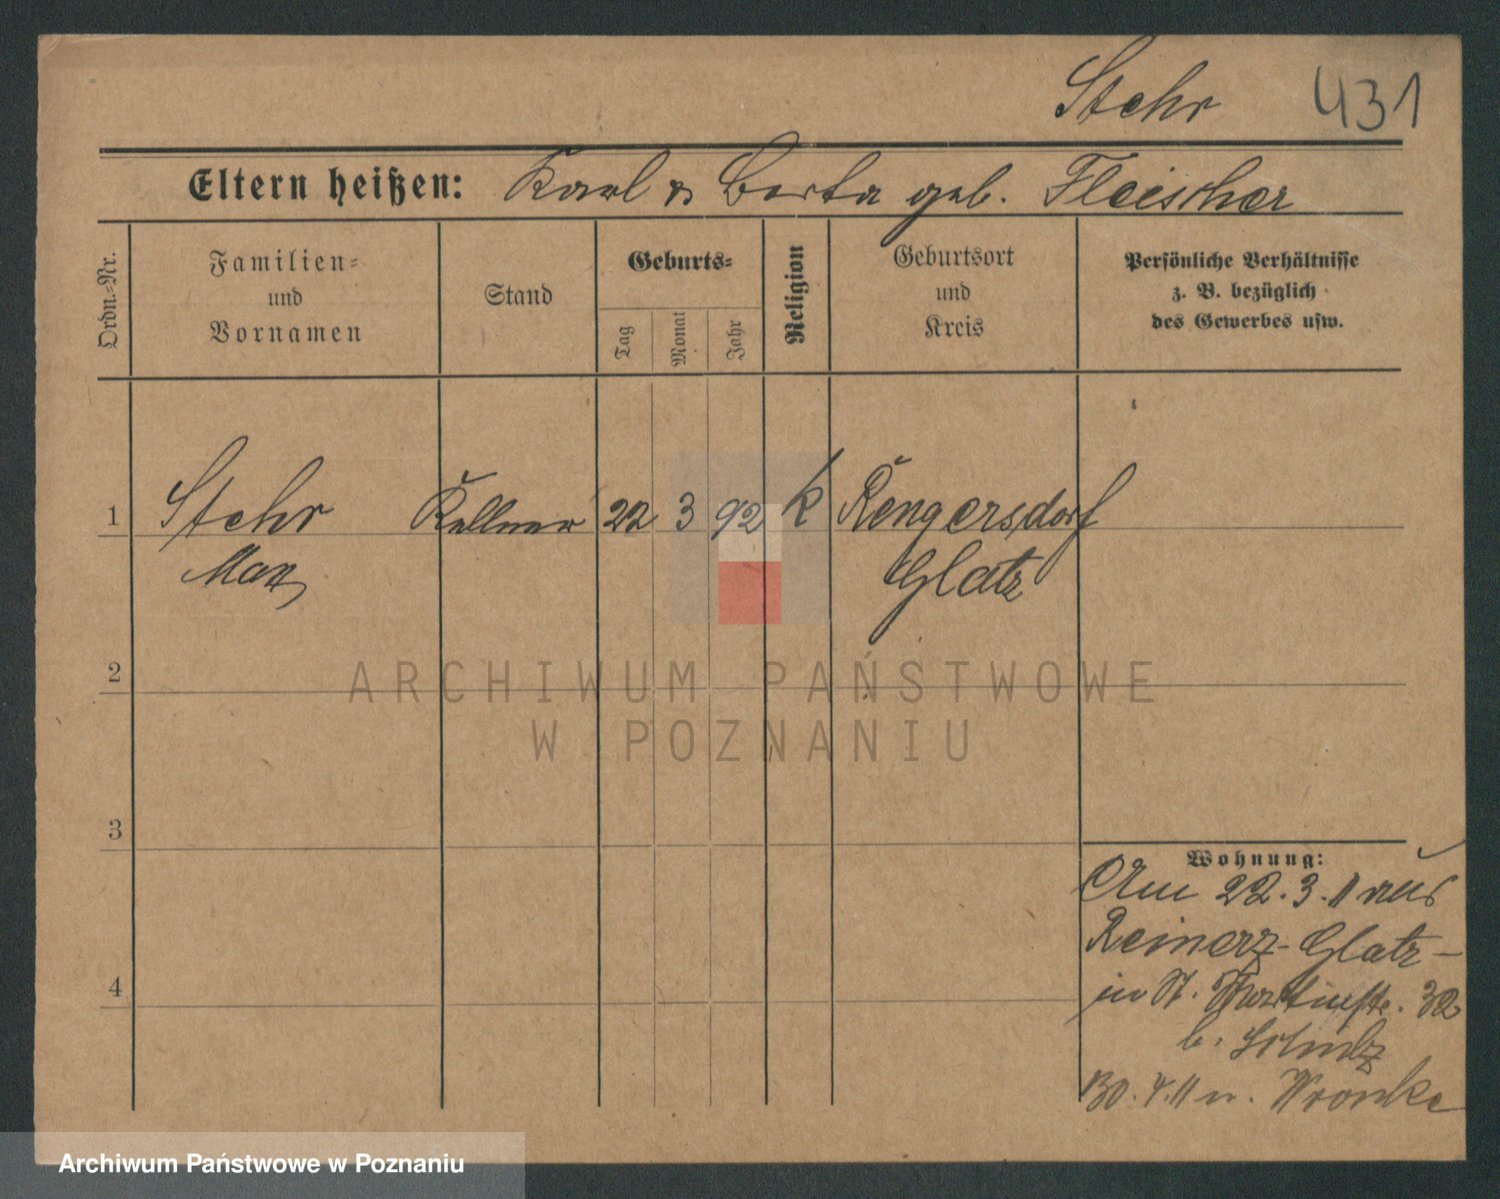 Stehr 431
Eltern heißen: Karl & Berta geb. Fleischer
Ordn.=Nr.
Familien=
und
Vornamen
Stand
Geburts=
Tag
Monat
Jahr
Religion
Geburtsort
und
Kreis
Persönliche Verhältnisse
z. B. bezüglich
des Gewerbes usw.
1 Stehr Kellner 22 3 92 k Rengersdorf
Max Glatz
2
ARCHIWUM PAŃSTWOWE
W POZNANIU
3
4
Wohnung:
Am 22.3.11 aus
Reinerz-Glatz-
in St. Martinstr. 32
b.
30.4.11 n. Wronke
Archiwum Państwowe w Poznaniu